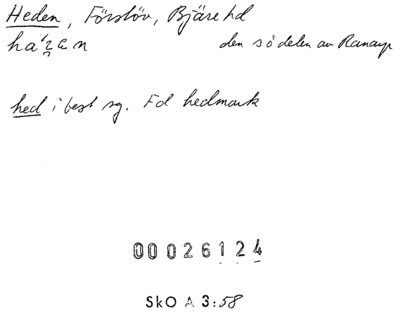 Heden, Förslöv, Bjäre hd
den sö delen av Ranarp
hed i best sg. Fd hedmark
00026124
SkO A 3:58